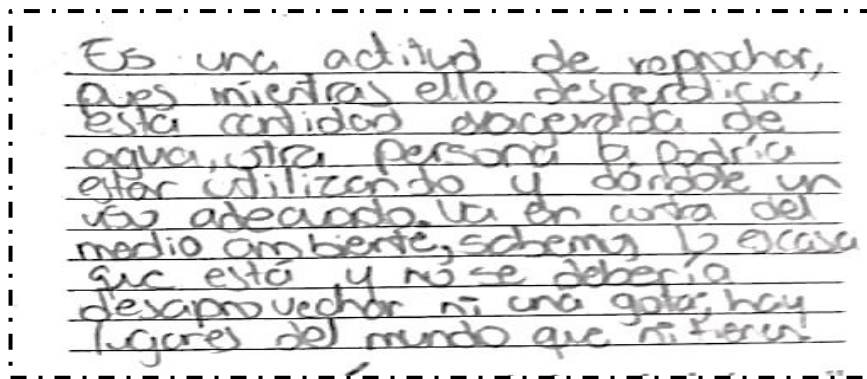 Es una actitud de reprochar,
pues mientras ella desperdicia
esta cantidad exacerbada de
agua, otra persona la podría
estar utilizando y dándole un
uso adecuado. Va en contra del
medio ambiente, sabemos lo escasa
que está y no se debería
desaprovechar ni una gota, hay
lugares del mundo que ni tienen